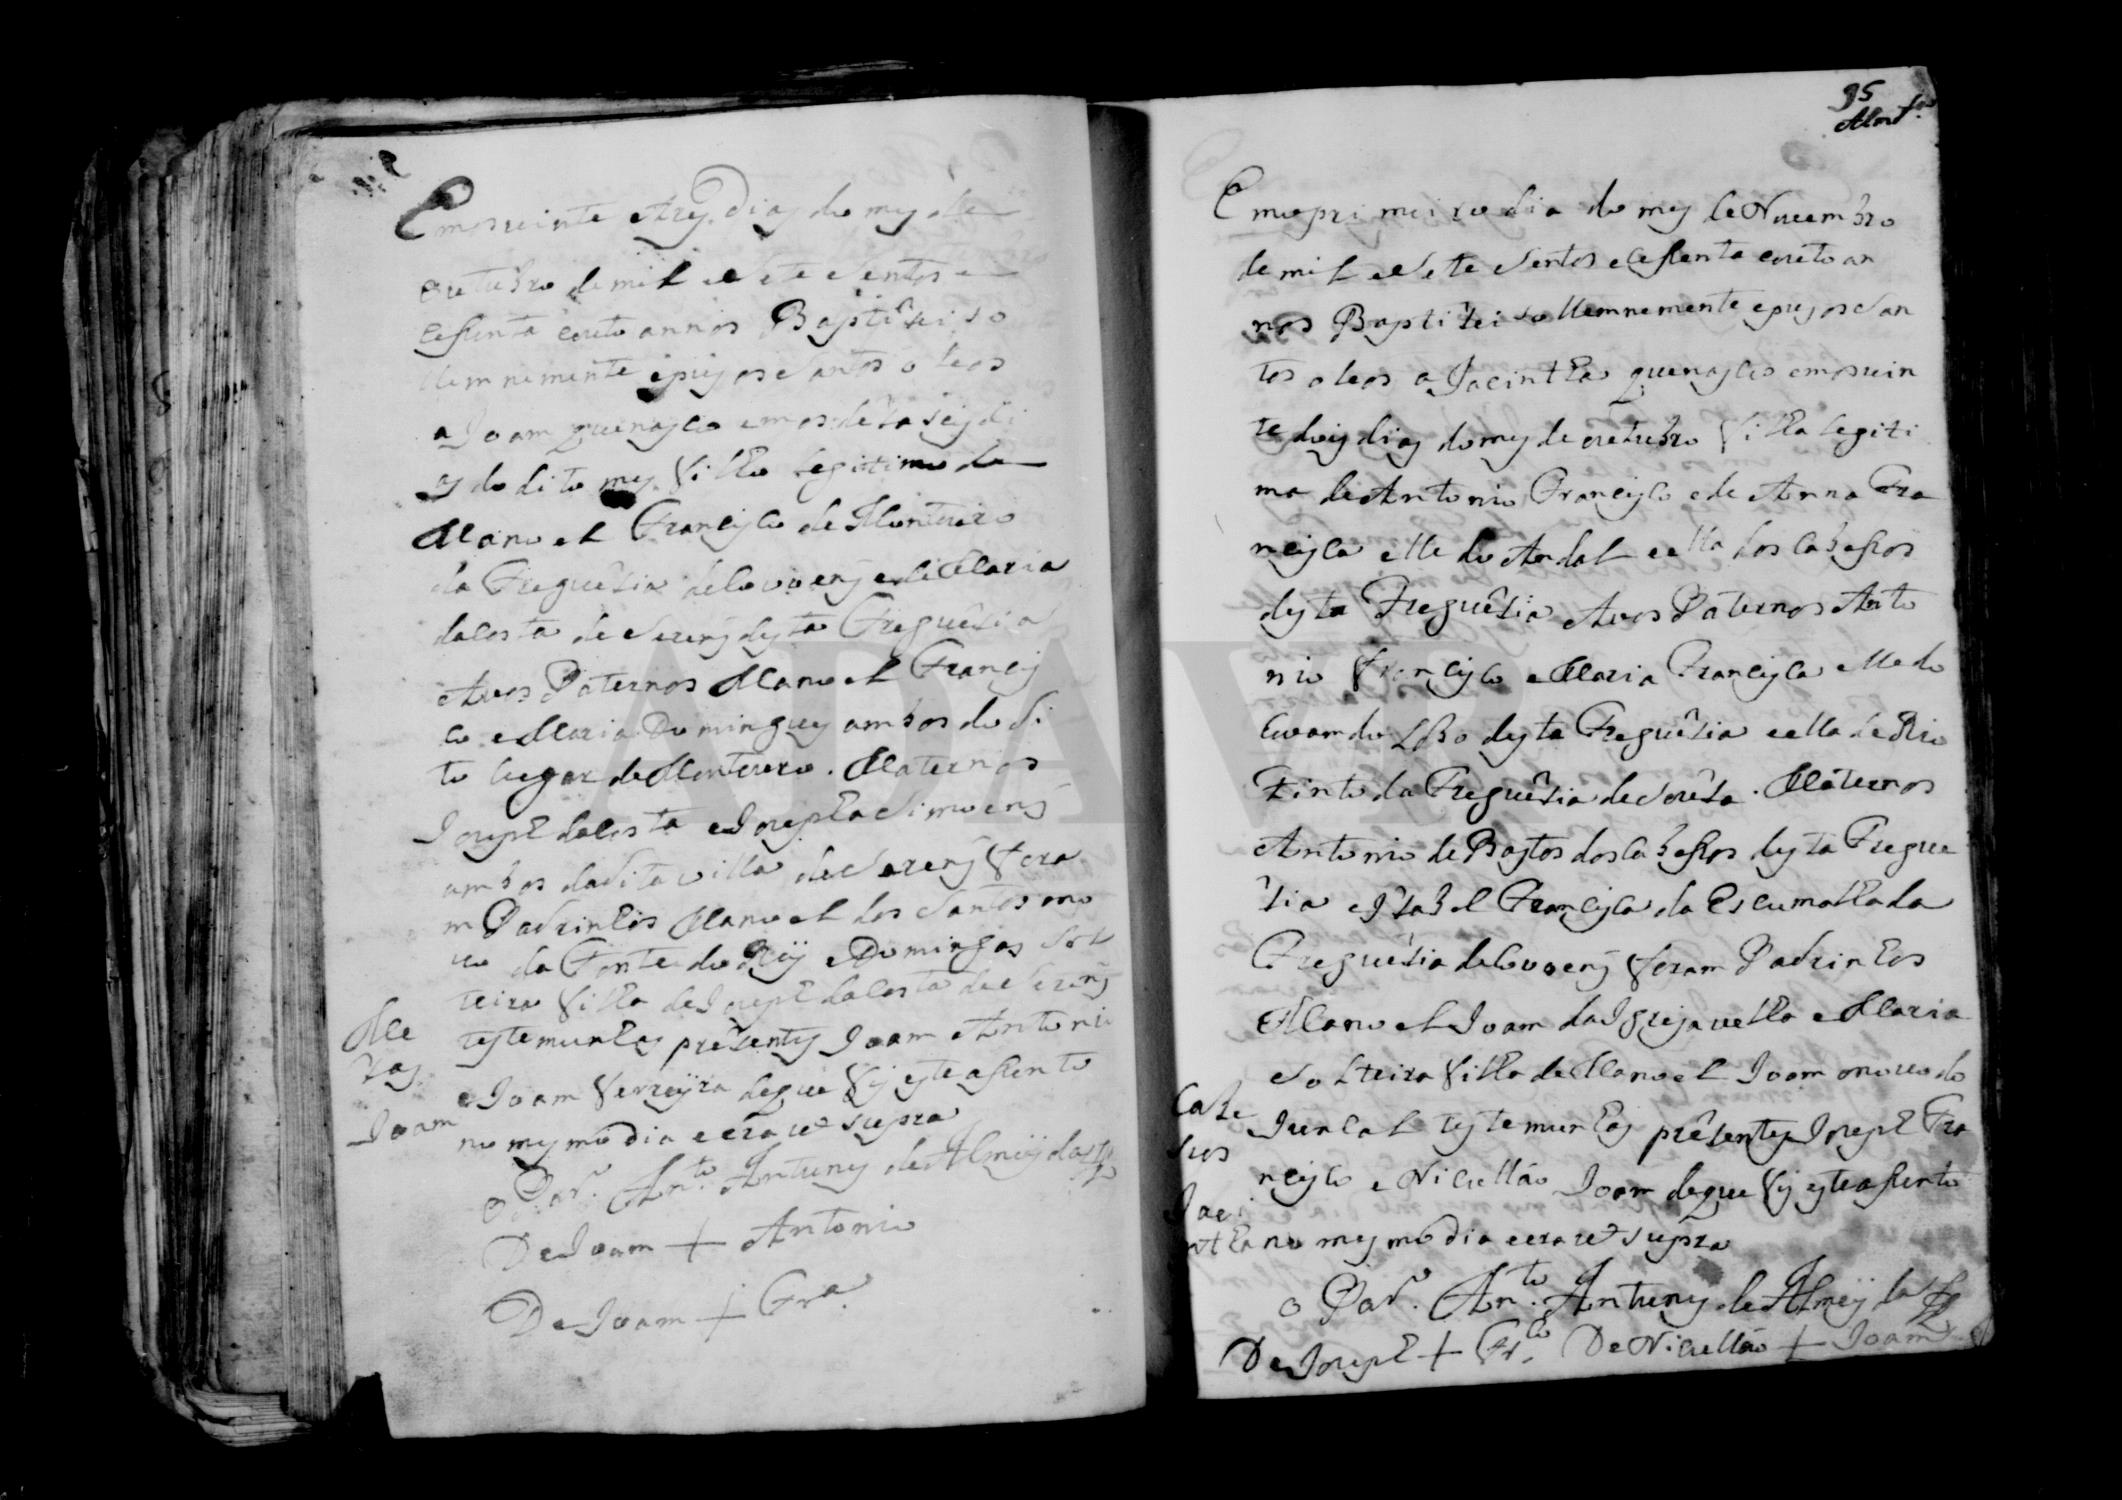 Emos vinte e trez dias do mez de
outubro de mil e sete sentos e
cessenta e outo annos Baptizei so
llemnemente e puz os santos oleos
a Joam que nasceo em os dezaseis di
as do dito mez filho legitimo de
Manoel Francisco de Monteiro
da Freguezia de Couoens e de Maria
da Costa de Serem desta Freguezia
Avos Paternos Manoel Francis
co e Maria Domingues ambos do di
to lugar de Monteiro. Maternos
Joseph da Costa e Josepha Simoens
ambos da dita villa de Serem fora
m Padrinhos Manoel dos Santos mo
uo da Fonte do e Domingas sol
teira filha de Joseph da Costa de Serem
testemunhas prezentes Joam Antonio
e Joam Ferreyra de que fis este assento
no mesmo dia e era ut supra
o Par.º An.to Antunes de Almeyda
De Joam + Antonio
De Joam + Fra.
Me
zas
Joam
95
Emo primeiro dia do mez de Nouembro
de mil e sete sentos e cessenta e outo an
nos Baptizei sollemnemente e puz os san
tos oleos a Jacintha que nasceo em os vin
te dois dias do mez de outubro filha legiti
ma de Antonio Francisco e de Anna Fra
ncisca elle do Ardal e ella dos Cabessos
desta Freguezia Avos Paternos Anto
nio Francisco e Maria Francisca elle do
Couam do Lobo desta Freguezia e ella de Rio
Tinto da Freguezia de Soreza. Maternos
Antonio de Bastos dos Cabessos desta Fregue
zia e Izabel Francisca da Escumalhada
Freguezia de Couoens foram Padrinhos
Manoel Joam da Igreja velha e Maria
solteira filha de Manoel Joam o nouo do
Juncal testemunhas prezentes Joseph Fra
ncisco e Nicullão Joam de que fis este assento
no mesmo dia e era ut supra
o Par.º An.to Antunes de Almeyda
De Joseph + Fr.co De Nicullão + Joam
Cabe
sos
Jaci
ntha
ADAVR